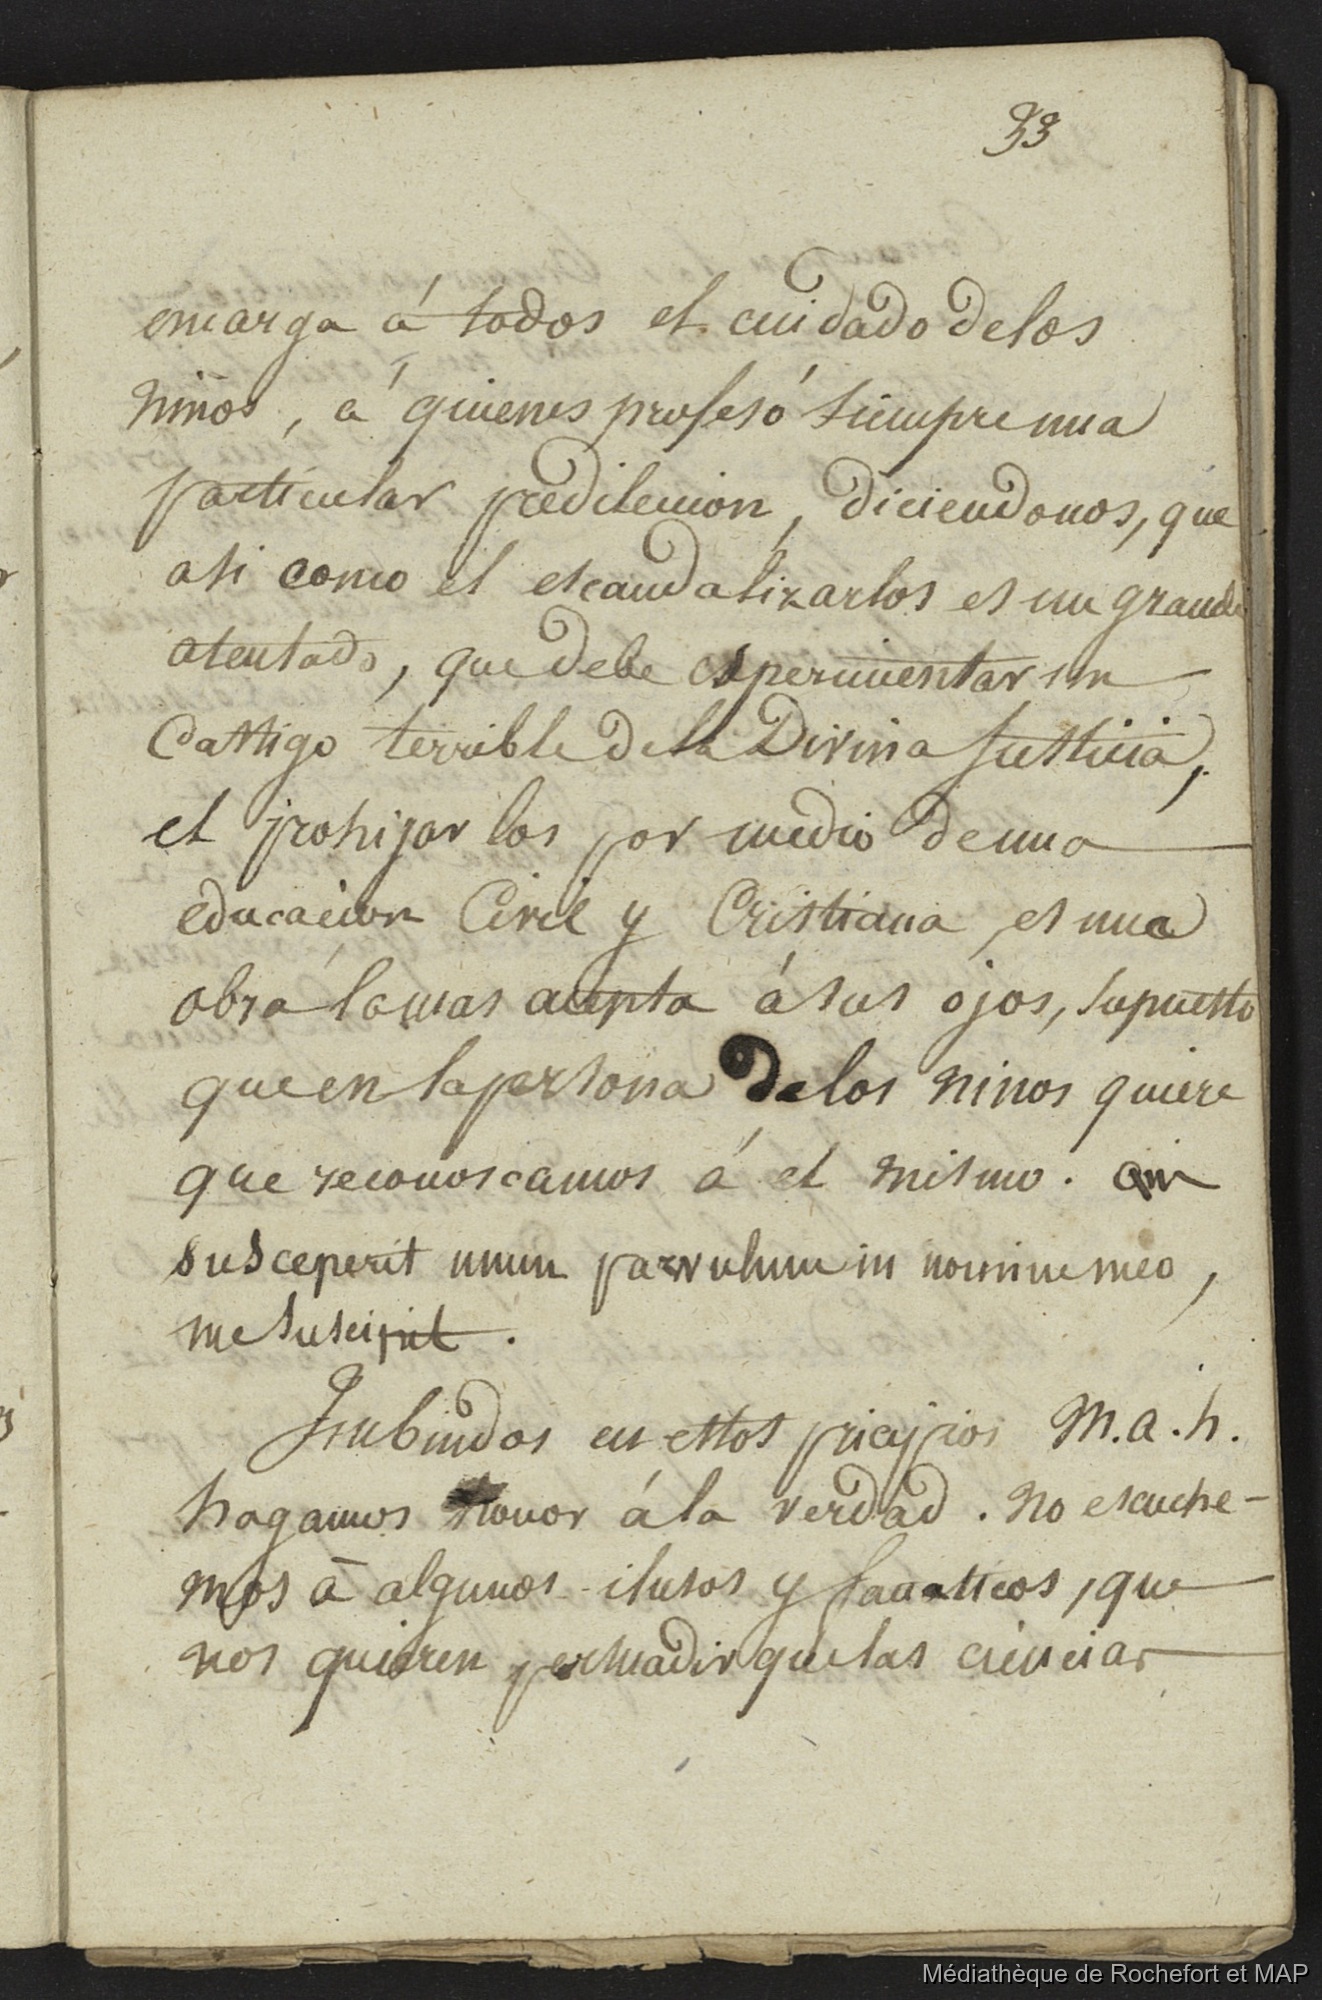 33
encarga á todos el cuidado delos
niños, á quienes profesó siempre una
particular predileccion, diciendonos, que
asi como el escandalizarlos es un grande
atentado, que debe esperimentar un
Castigo terrible dela Divina Justicia,
el prohijar los por medio de una
educacion Civil y Cristiana, es una
obra la mas acepta á sus ojos, supuesto
que en la persona de los ninos quiere
que reconoscamos á el mismo. Qui
susceperit unum parvulum in nomine meo,
me suscipit.
Imbuidos en estos pricipios M.a.h.
hagamos honor á la verdad. No escuche-
mos à algunos ilusos y fanaticos, que
nos quieren persuadir que las ciencias
Médiathèque de Rochefort et MAP